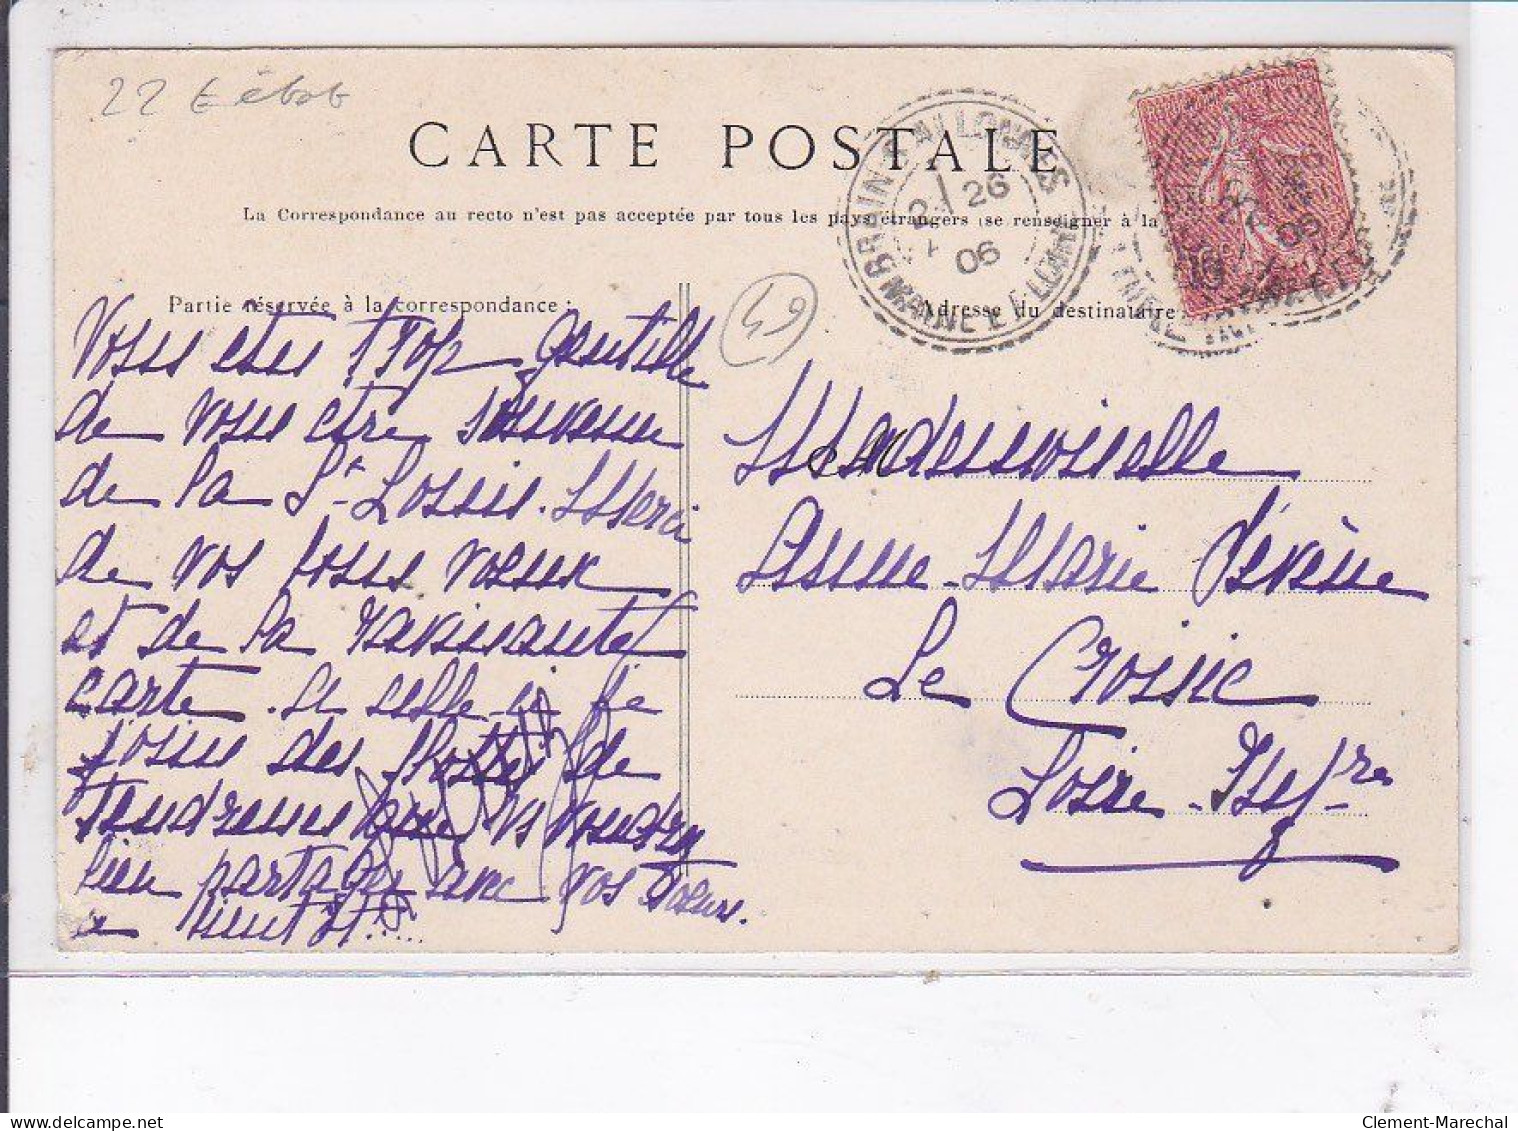 22
CARTE POSTALE
La Correspondance au recto n'est pas acceptée par tous les pays étrangers (se renseigner à la
Partie réservée à la correspondance :
Adresse du destinataire
49
BRAIN S ALLONNES
26
06
MAINE ET LOIRE
Vous etes trop gentille
de vous etre souvenue
de la St Louis. Merci
de vos bons voeux
et de la ravissante
carte. A celle-ci je
joins des flots de
tendresses que vs voudrez
bien partager avec vos soeurs.
a bientôt.....
Mademoiselle
Anne-Marie Levêque
Le Croisic
Loire-Infre
Clement-Marechal